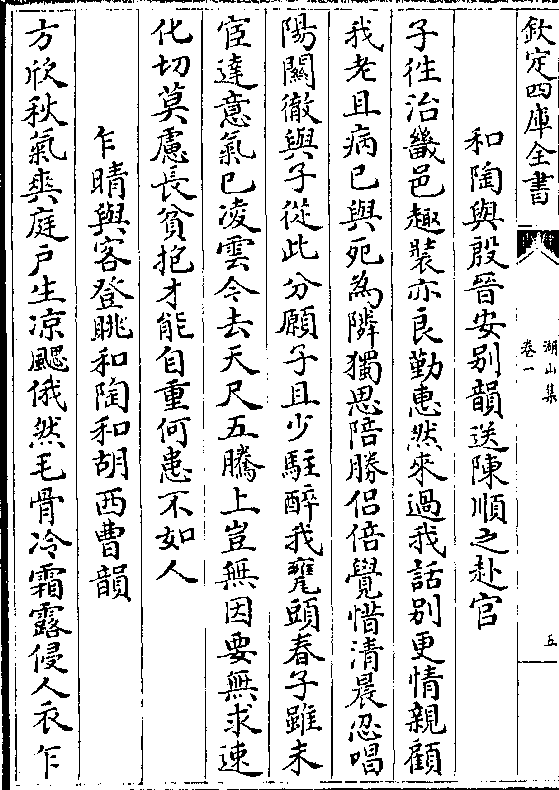 欽定四庫全書
湖山集
卷一
五
和陶與殷晉安別韻送陳順之赴官
子徃治畿邑趣裝亦良勤惠然來過我話别更情親顧
我老且病已與死為隣獨思陪勝侣倍覺惜清晨忍唱
陽關徹與子從此分願子且少駐醉我甕頭春子雖未
宦達意氣已凌雲今去天尺五騰上豈無因要無求速
化切莫慮長貧抱才能自重何患不如人
乍晴與客登眺和陶和胡西曹韻
方欣秋氣爽庭戸生凉颸俄然毛骨冷霜露侵人衣乍